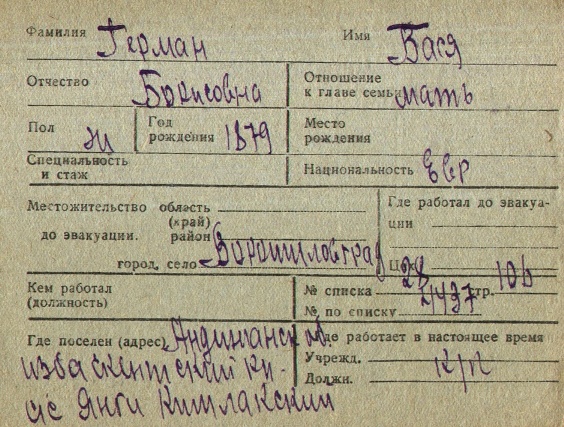 Фамилия Герман Имя Вася
Отчество Борисовна Отношение к главе семьи мать
Пол ж Год рождения 1879 Место рождения
Специальность и стаж Национальность Евр
Местожительство область (край)
до эвакуации. район
город, село Ворошиловград
Где работал до эвакуации
Кем работал (должность)
№ списка 4437 стр. 106
№ по списку
Где поселен (адрес) Андижанск об.
избаскентский ки-
Янги Кишлакский
Где работает в настоящее время
Учрежд.
Должн.